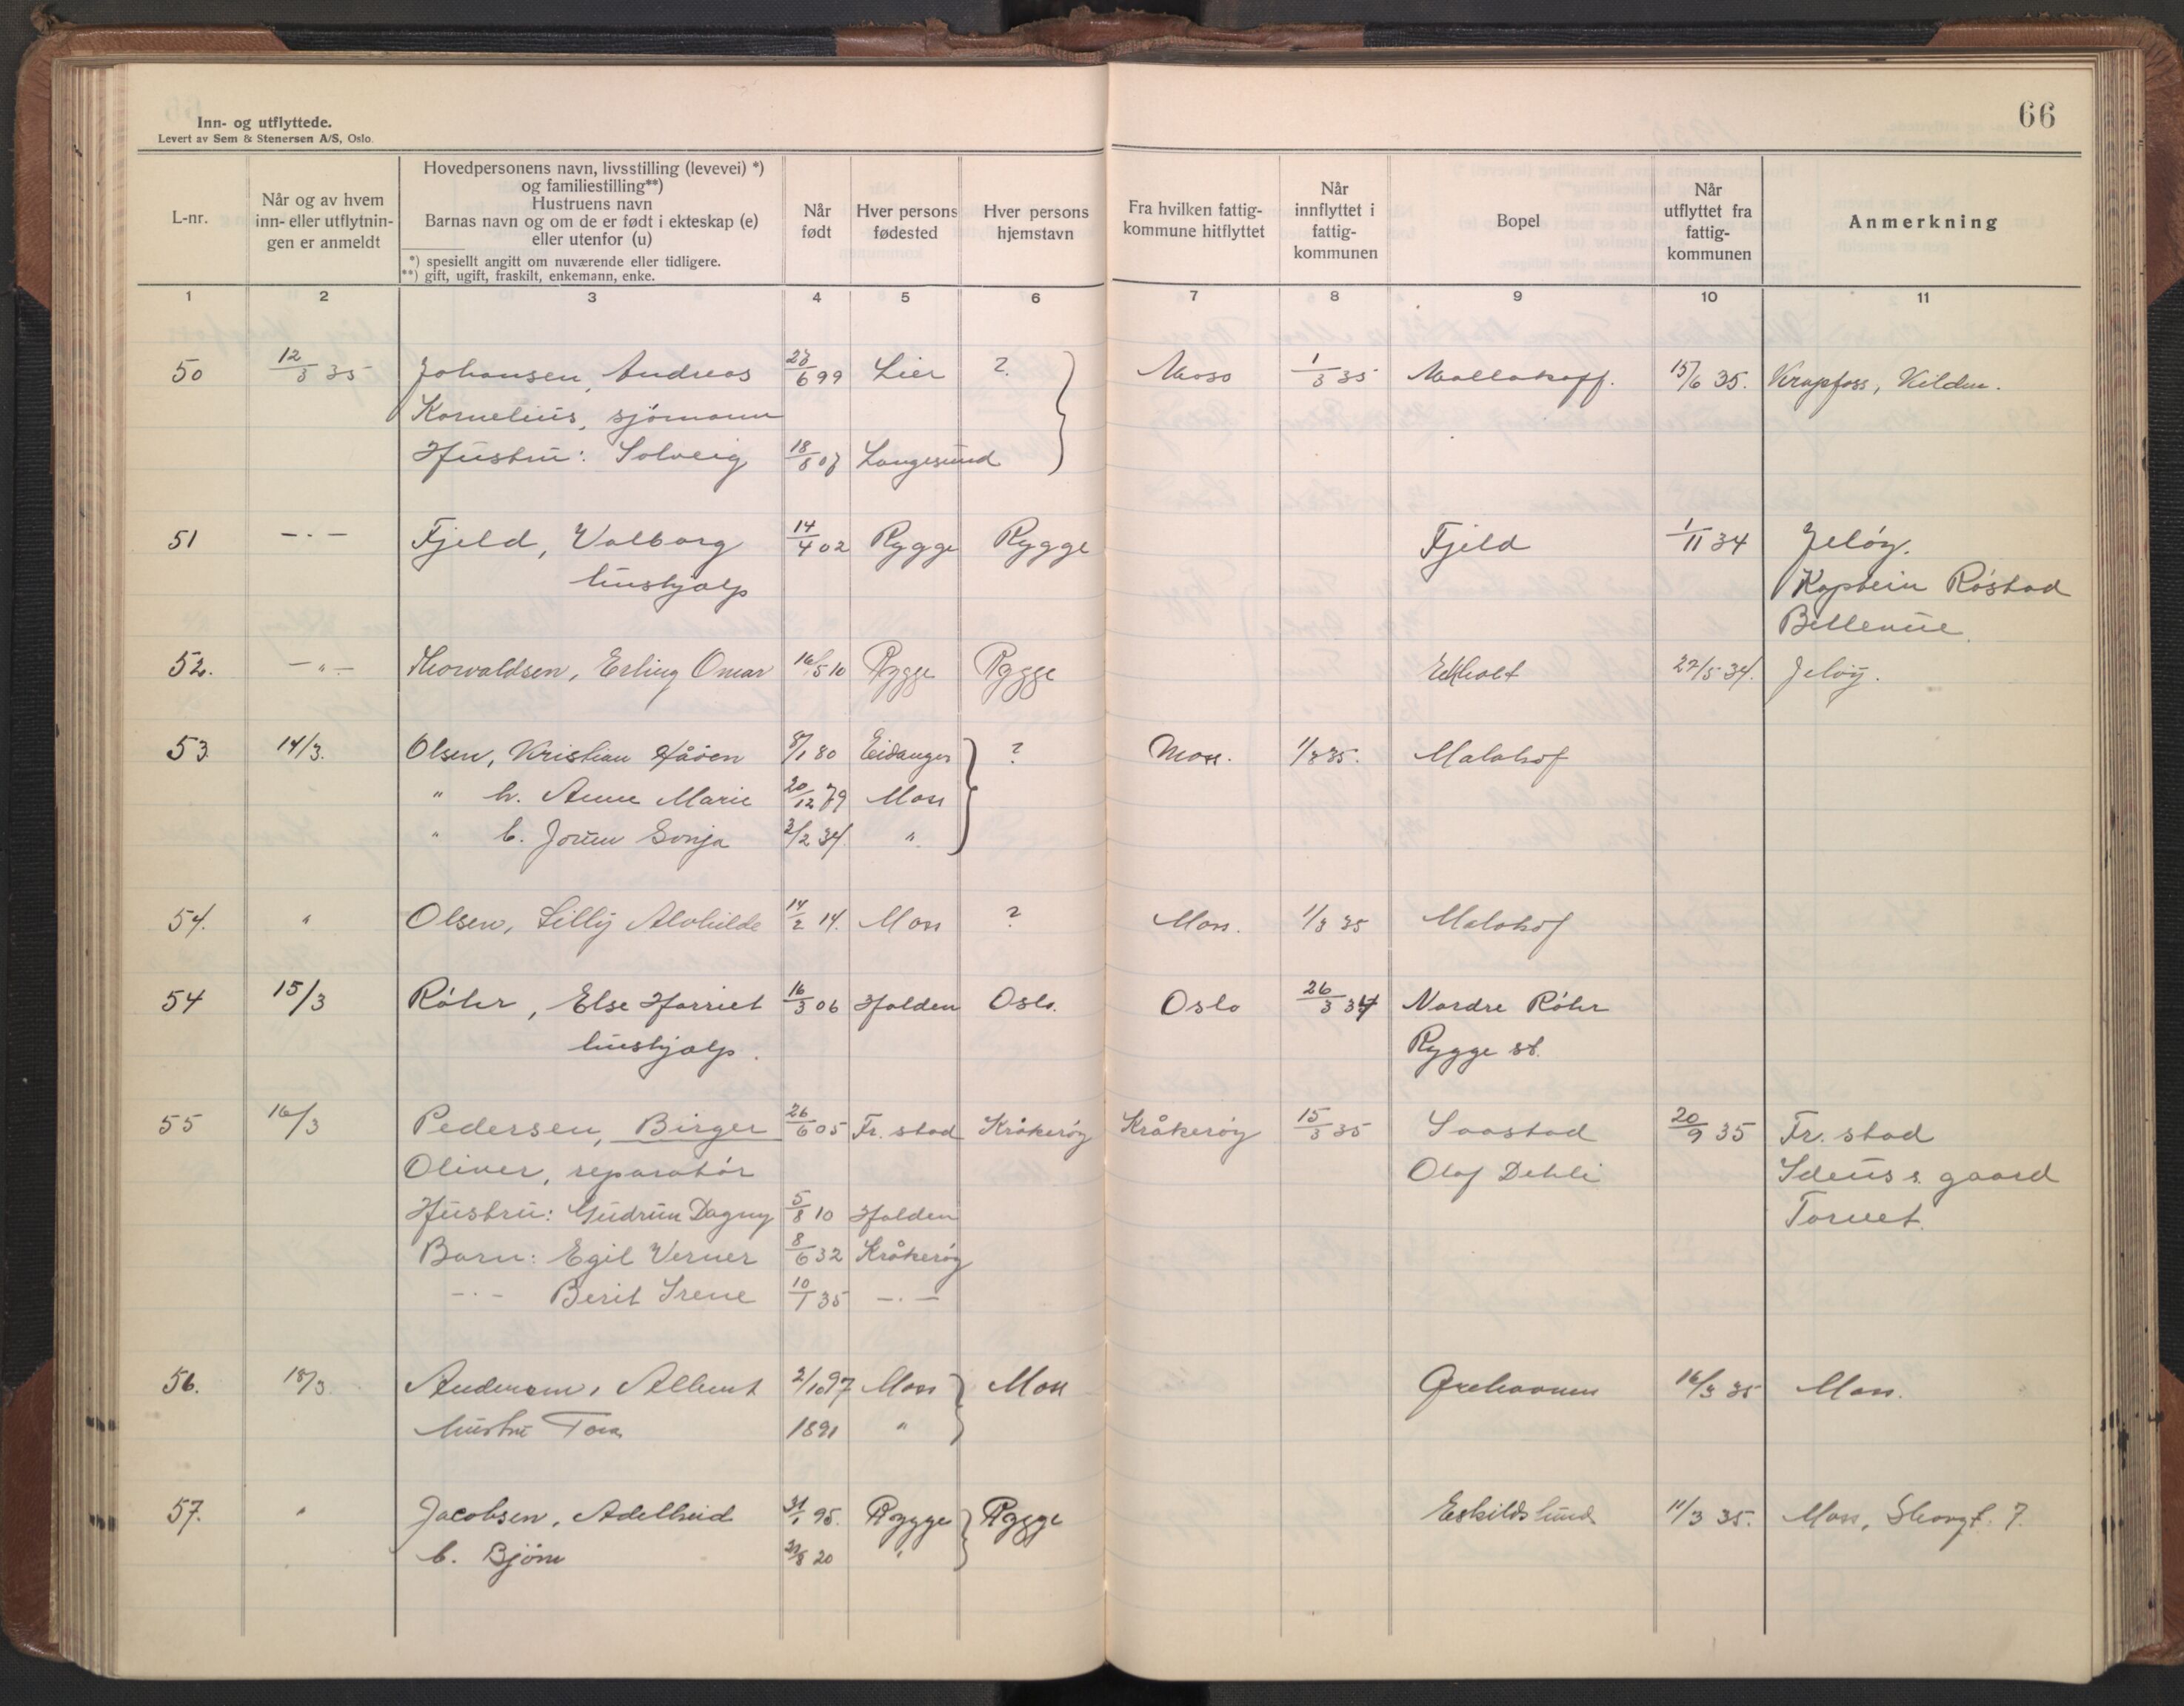 66
Inn- og utflyttede.
Levert av Sem & Stenersen A/S, Oslo.
L-nr.
Når og av hvem inn- eller utflytnin- gen er anmeldt
Hovedpersonens navn, livsstilling (levevei) *)
og familiestilling**)
Hustruens navn
Barnas navn og om de er født i ekteskap (e)
eller utenfor (u)
*) spesiellt angitt om nuværende eller tidligere.
**) gift, ugift, fraskilt, enkemann, enke.
Når født
Hver persons fødested
Hver persons hjemstavn
Fra hvilken fattig- kommune hitflyttet
Når innflyttet i fattig- kommunen
Bopel
Når utflyttet fra fattig- kommunen
Anmerkning
1 2 3 4 5 6 7 8 9 10 11
50 12/3 35 Johansen, Andreas 6 99 Lier ? Moss 1/3 35 Mallakoff. 15/6 35. Krapfoss, Kilden.
Kornelius, sjömann
Hustru: Solveig Langesund
51 -·- Fjeld, Valborg 14/4 02 Rygge Rygge Fjeld 1/11 34 Jeløy.
hushjælp Kaptein Röstad
Bellevue.
52. -"- Thorvaldsen, Erling Omar 16/5 10 Rygge Rygge Ekholt 27/5 34. Jeløy.
53. 14/3. Olsen, Kristian Håöen 8/1 80 Eidanger ? Moss. 1/3 35. Malakof
" h. Anne Marie 20/12 79 Moss
" b. Jorun Sonja 3/2 34. "
54. " Olsen, Lilly Alvhilde 14/2 14. Moss ? Moss. 1/3 35 Malakof
54 15/3 Röhr, Else Harriet 16/3 06 Halden Oslo. Oslo 26/3 34 Nordre Röhr
hushjælp. Rygge st.
55 16/3 Pedersen, Birger 26/6 05 Fr. stad Kråkerøy Kråkerøy 15/3 35 Saastad 20/9 35 Fr. stad
Oliver, reparatör Olaf Dehli gaard
Hustru: Gudrun Dagny 5/8 10 Halden Torvet.
Barn: Egil Verner 8/6 32 Kråkerøy
-·- Berit Irene 10/1 35 -·-
56. 18/3 Andersen, Albert 2/10 97 Moss Moss Ørehavnen 16/3 35 Moss.
hustru Tora 1891 "
57. " Jacobsen, Adelheid 31/1 95. Rygge Rygge Eskildslund 11/3 35. Moss, 7.
b. Bjørn 20 "